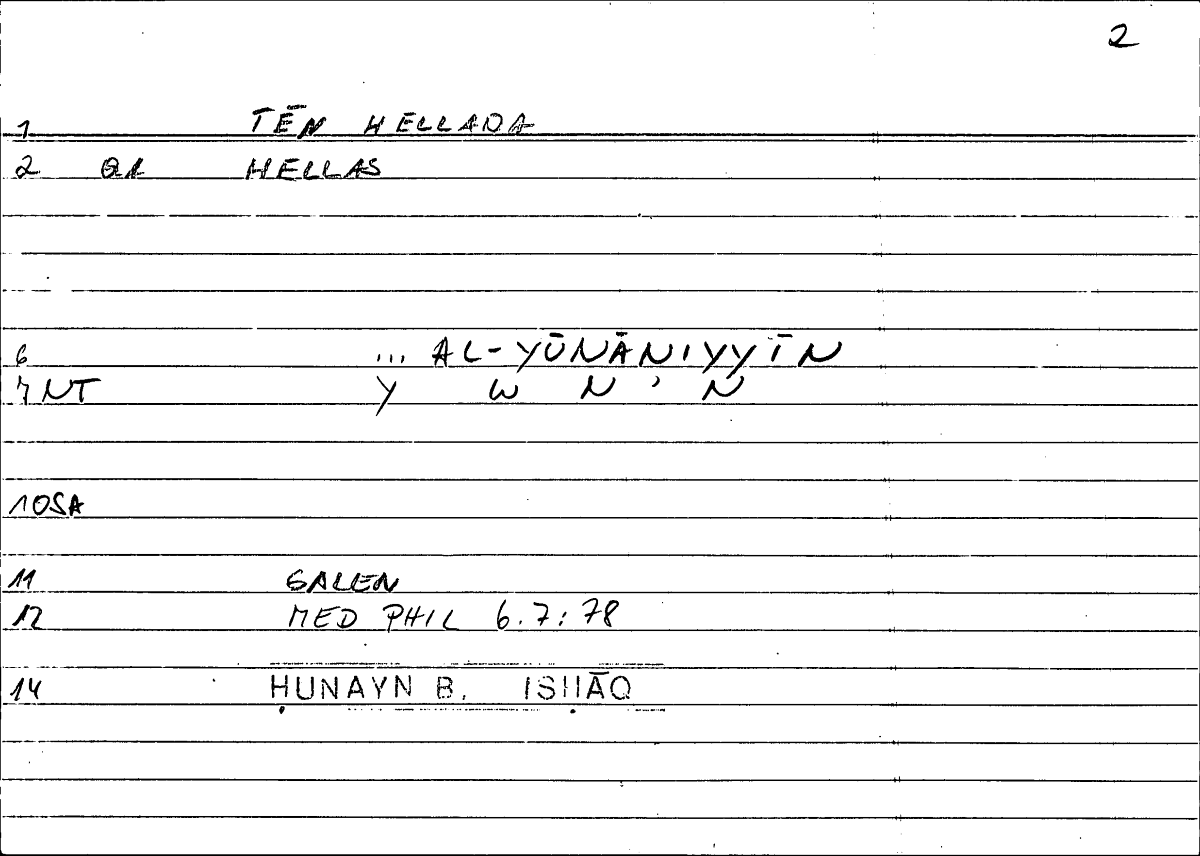 2
1 TĒN HELLADA
2 Q1 HELLAS
6 ... AL-YŪNĀNIYYĪN
7 NT Y W N ' N
10SA
11 GALEN
12 MED PHIL 6.7:78
14 ḤUNAYN B. ISḤĀQ